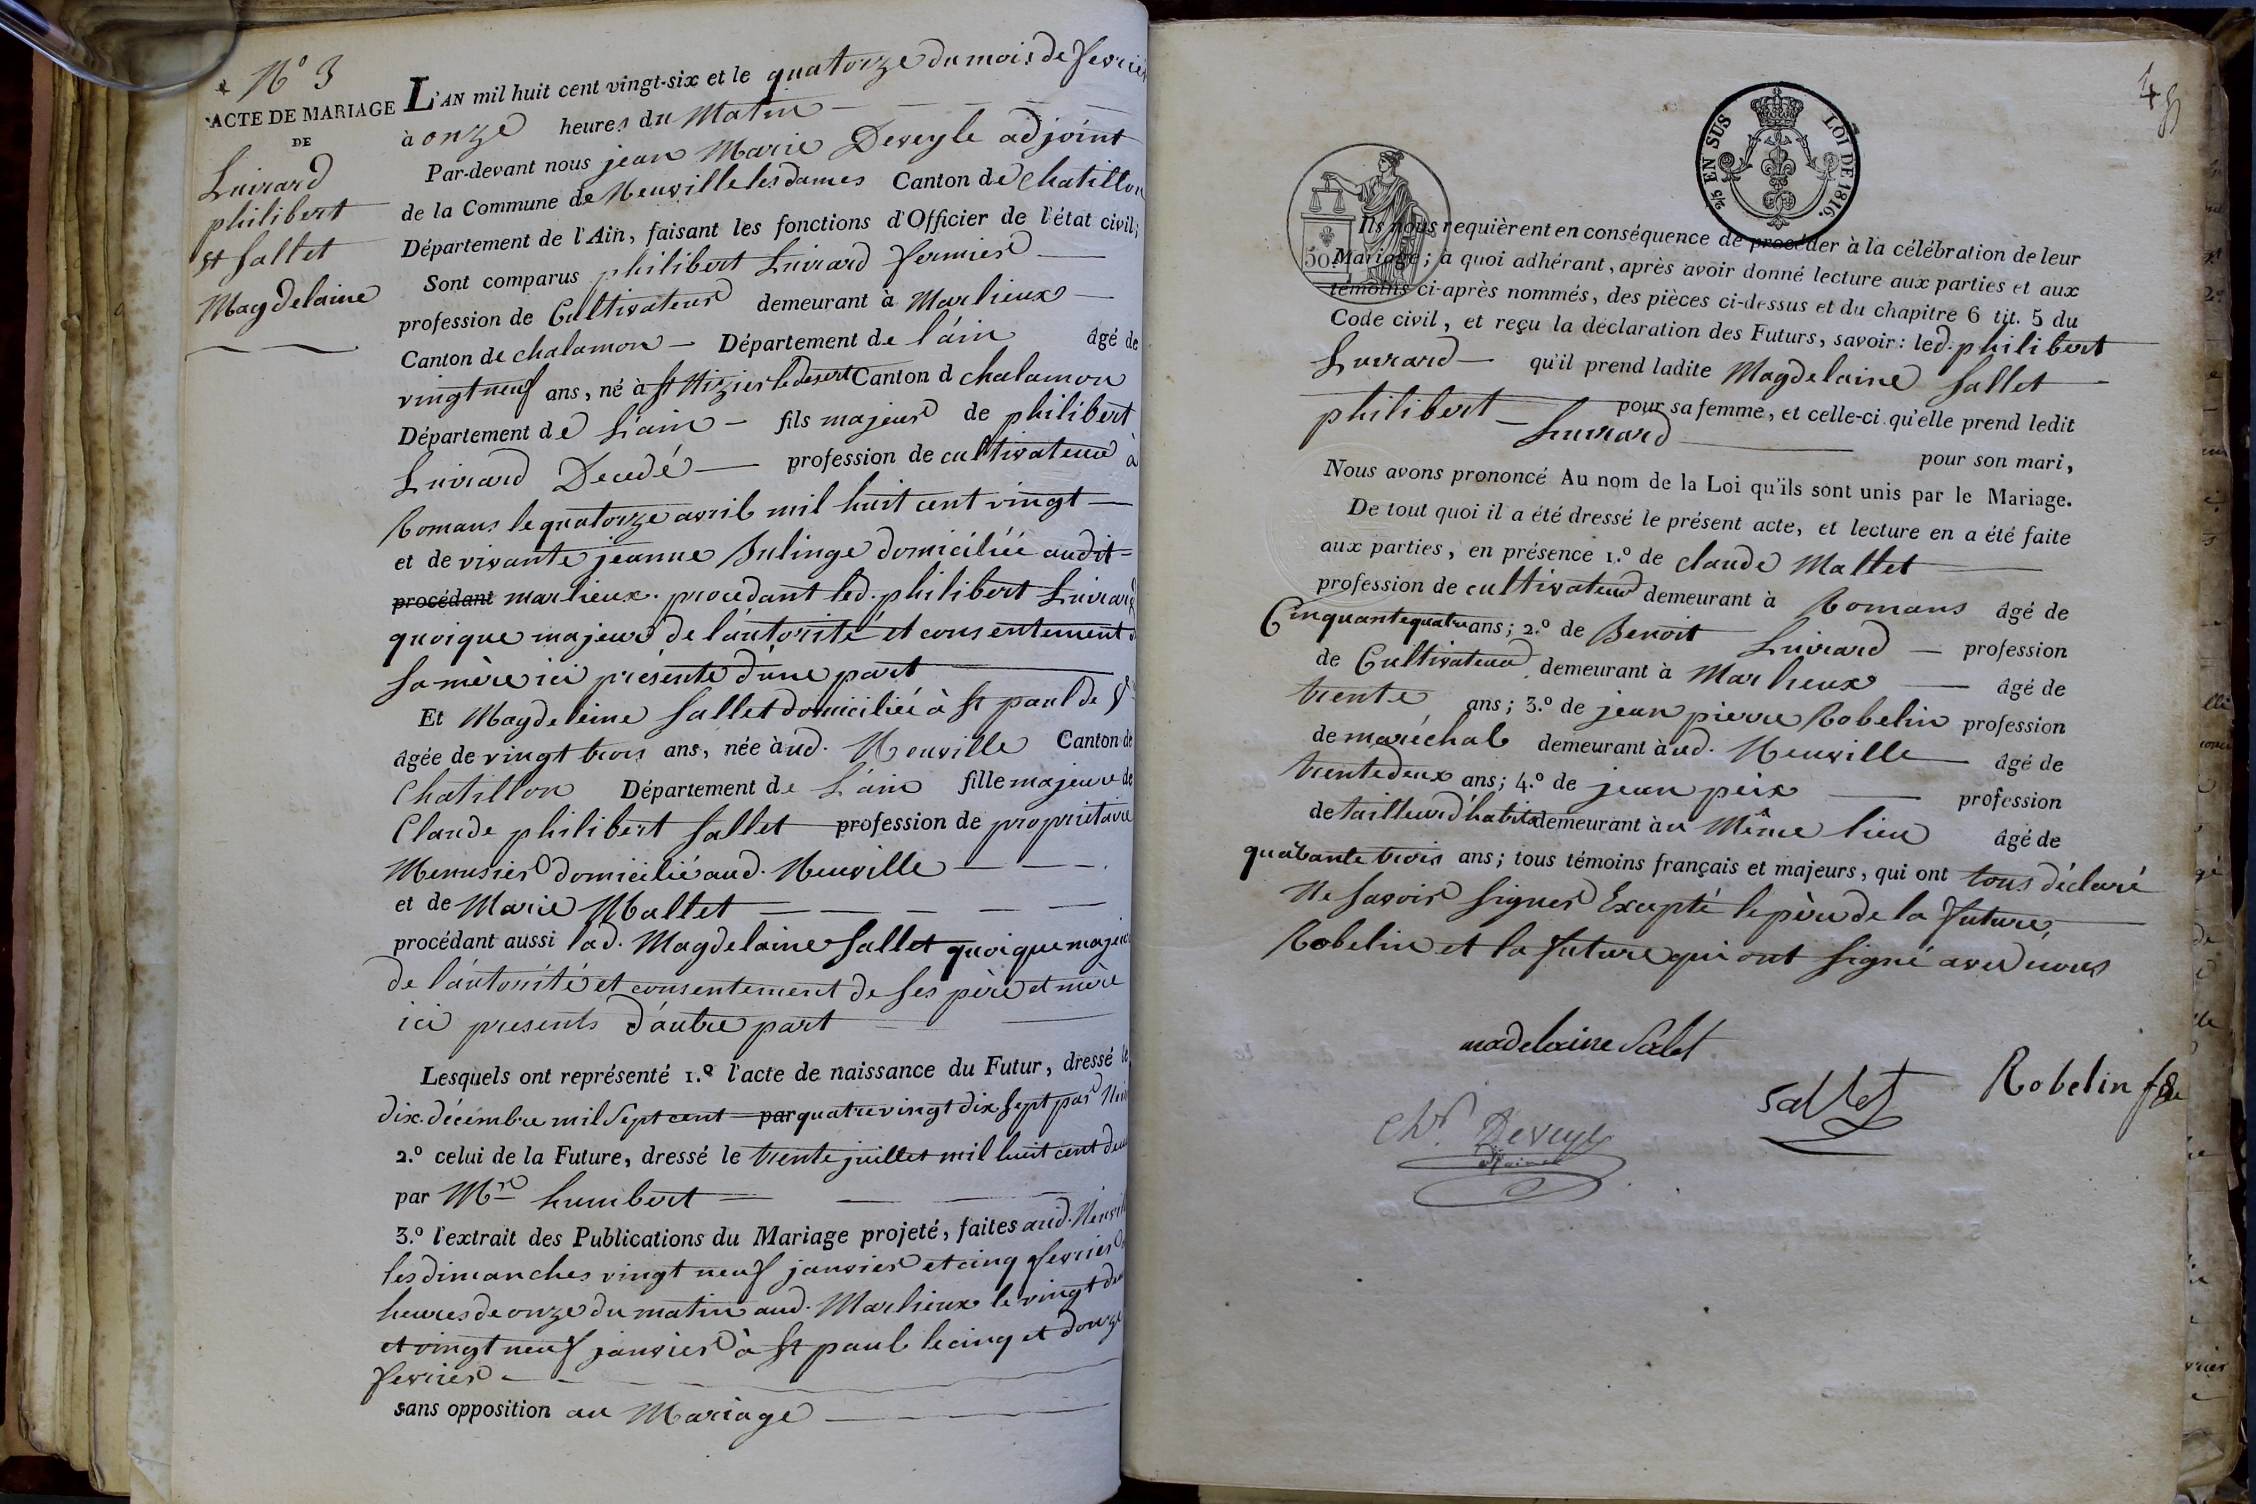 N° 3
ACTE DE MARIAGE
DE
Luirard
philibert
et Sallet
Magdelaine
L'AN mil huit cent vingt-six et le quatorze du mois de fevrier
à onze heures du Matin
Par-devant nous jean Marie Deveyle adjoint
de la Commune de Neuville les dames Canton de Chatillon
Département de l'Ain, faisant les fonctions d'Officier de l'état civil;
Sont comparus philibert Luirard fermier
profession de Cultivateur demeurant à Marlieux
Canton de chalamon Département de l'ain âgé de
vingt neuf ans, né à St Nizier le desert Canton d chalamon
Département de L'ain fils majeur de philibert
Luirard Decedé profession de cultivateur à
Romans le quatorze avril mil huit cent vingt
et de vivante jeanne Bulinge domiciliée audit
procédant marlieux. procedant led. philibert Luirard
quoique majeur de l'autorité et consentement d
sa mère ici présente d'une part
Et Magdeleine Sallet domiciliée à St paul de
âgée de vingt trois ans, née à ud. Neuville Canton de
Chatillon Département de L'ain fille majeure de
Claude philibert Sallet profession de propriétaire
Menusier domicilié aud. Neuville
et de Marie Mallet
procédant aussi lad. Magdelaine Sallet quoique majeur
de l'autorité et consentement de ses père et mère
ici presents d'autre part
Lesquels ont représenté 1.° l'acte de naissance du Futur, dressé le
dix décembre mil sept cent par quatre vingt dix sept par
2.° celui de la Future, dressé le trente juillet mil huit cent deux
par Mre humbert
3.° l'extrait des Publications du Mariage projeté, faites aud. Neuville
les dimanches vingt neuf janvier et cinq fevrier
heures de onze du matin aud. Marlieux le vingt deux
et vingt neuf janvier à St paul le cinq et douze
fevrier
sans opposition au Mariage
48
2/5 EN SUS LOI DE 1816.
50
Ils nous requièrent en conséquence de procéder à la célébration de leur
Mariage; à quoi adhérant, après avoir donné lecture aux parties et aux
témoins ci-après nommés, des pièces ci-dessus et du chapitre 6 tit. 5 du
Code civil, et reçu la déclaration des Futurs, savoir: led. philibert
Luirard qu'il prend ladite Magdelaine Sallet
pour sa femme, et celle-ci qu'elle prend ledit
philibert Luirard
pour son mari,
Nous avons prononcé Au nom de la Loi qu'ils sont unis par le Mariage.
De tout quoi il a été dressé le présent acte, et lecture en a été faite
aux parties, en présence 1.° de claude Mallet
profession de cultivateur demeurant à Romans âgé de
Cinquante quatre ans; 2.° de Benoit Luirard profession
de Cultivateur demeurant à Marlieux âgé de
trente ans; 3.° de jean pierre Robelin profession
de maréchal demeurant à ud. Neuville âgé de
trente deux ans; 4.° de jean peix profession
de tailleur d'habits demeurant à u Même lieu âgé de
quarante trois ans; tous témoins français et majeurs, qui ont tous déclaré
Ne savoir signer Excepté le père de la future,
Robelin et la future qui ont signé avec nous
madelaine Salet
Sallet
Robelin
Deveyle
adjoint